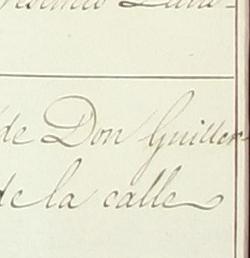 de Don Guiller-
de la calle